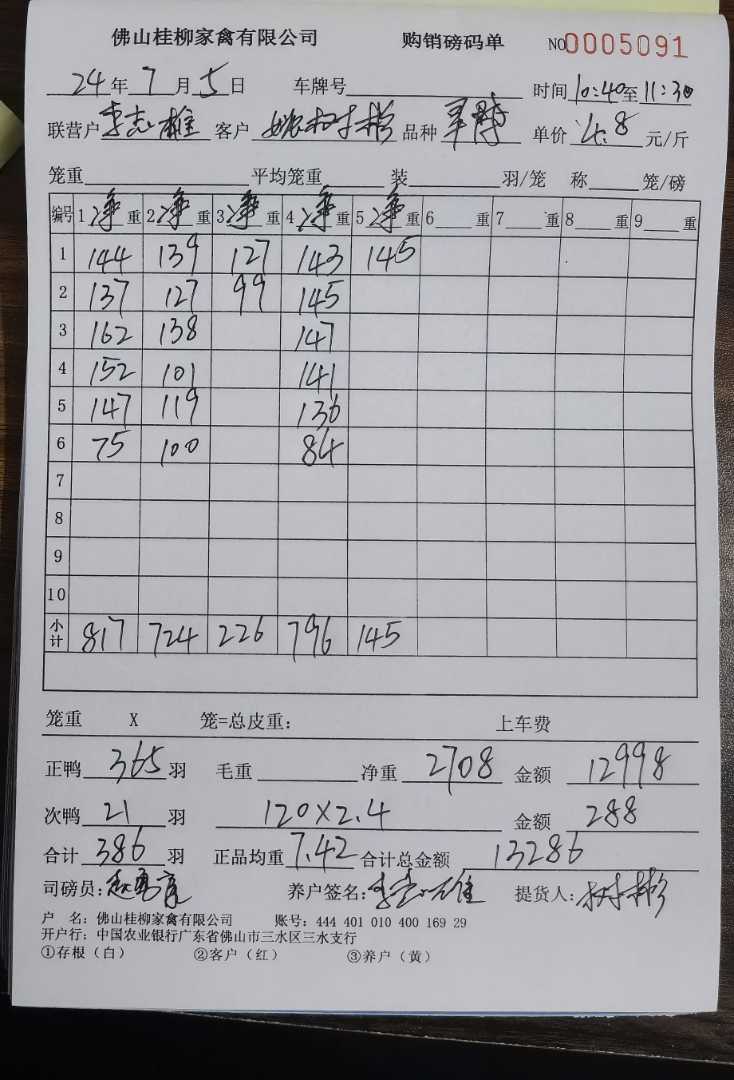 佛山桂柳家禽有限公司 购销磅码单 NO0005091
24年7月5日 车牌号 时间10:40至11:30
联营户李志雄 客户 姚树彬 品种 单价4.8元/斤
笼重 平均笼重 装 羽/笼 称 笼/磅
编号 1净重 2净重 3净重 4净重 5净重 6 重 7 重 8 重 9 重
1 144 139 127 143 145
2 137 127 99 145
3 162 138 147
4 152 101 141
5 147 119 136
6 75 100 84
7
8
9
10
小计 817 724 226 796 145
笼重 X 笼=总皮重: 上车费
正鸭365羽 毛重 净重2708 金额12998
次鸭21羽 120×2.4 金额288
合计386羽 正品均重7.42 合计总金额13286
司磅员: 养户签名:李志雄 提货人:树彬
户 名: 佛山桂柳家禽有限公司 账号: 444 401 010 400 169 29
开户行: 中国农业银行广东省佛山市三水区三水支行
①存根(白) ②客户(红) ③养户(黄)